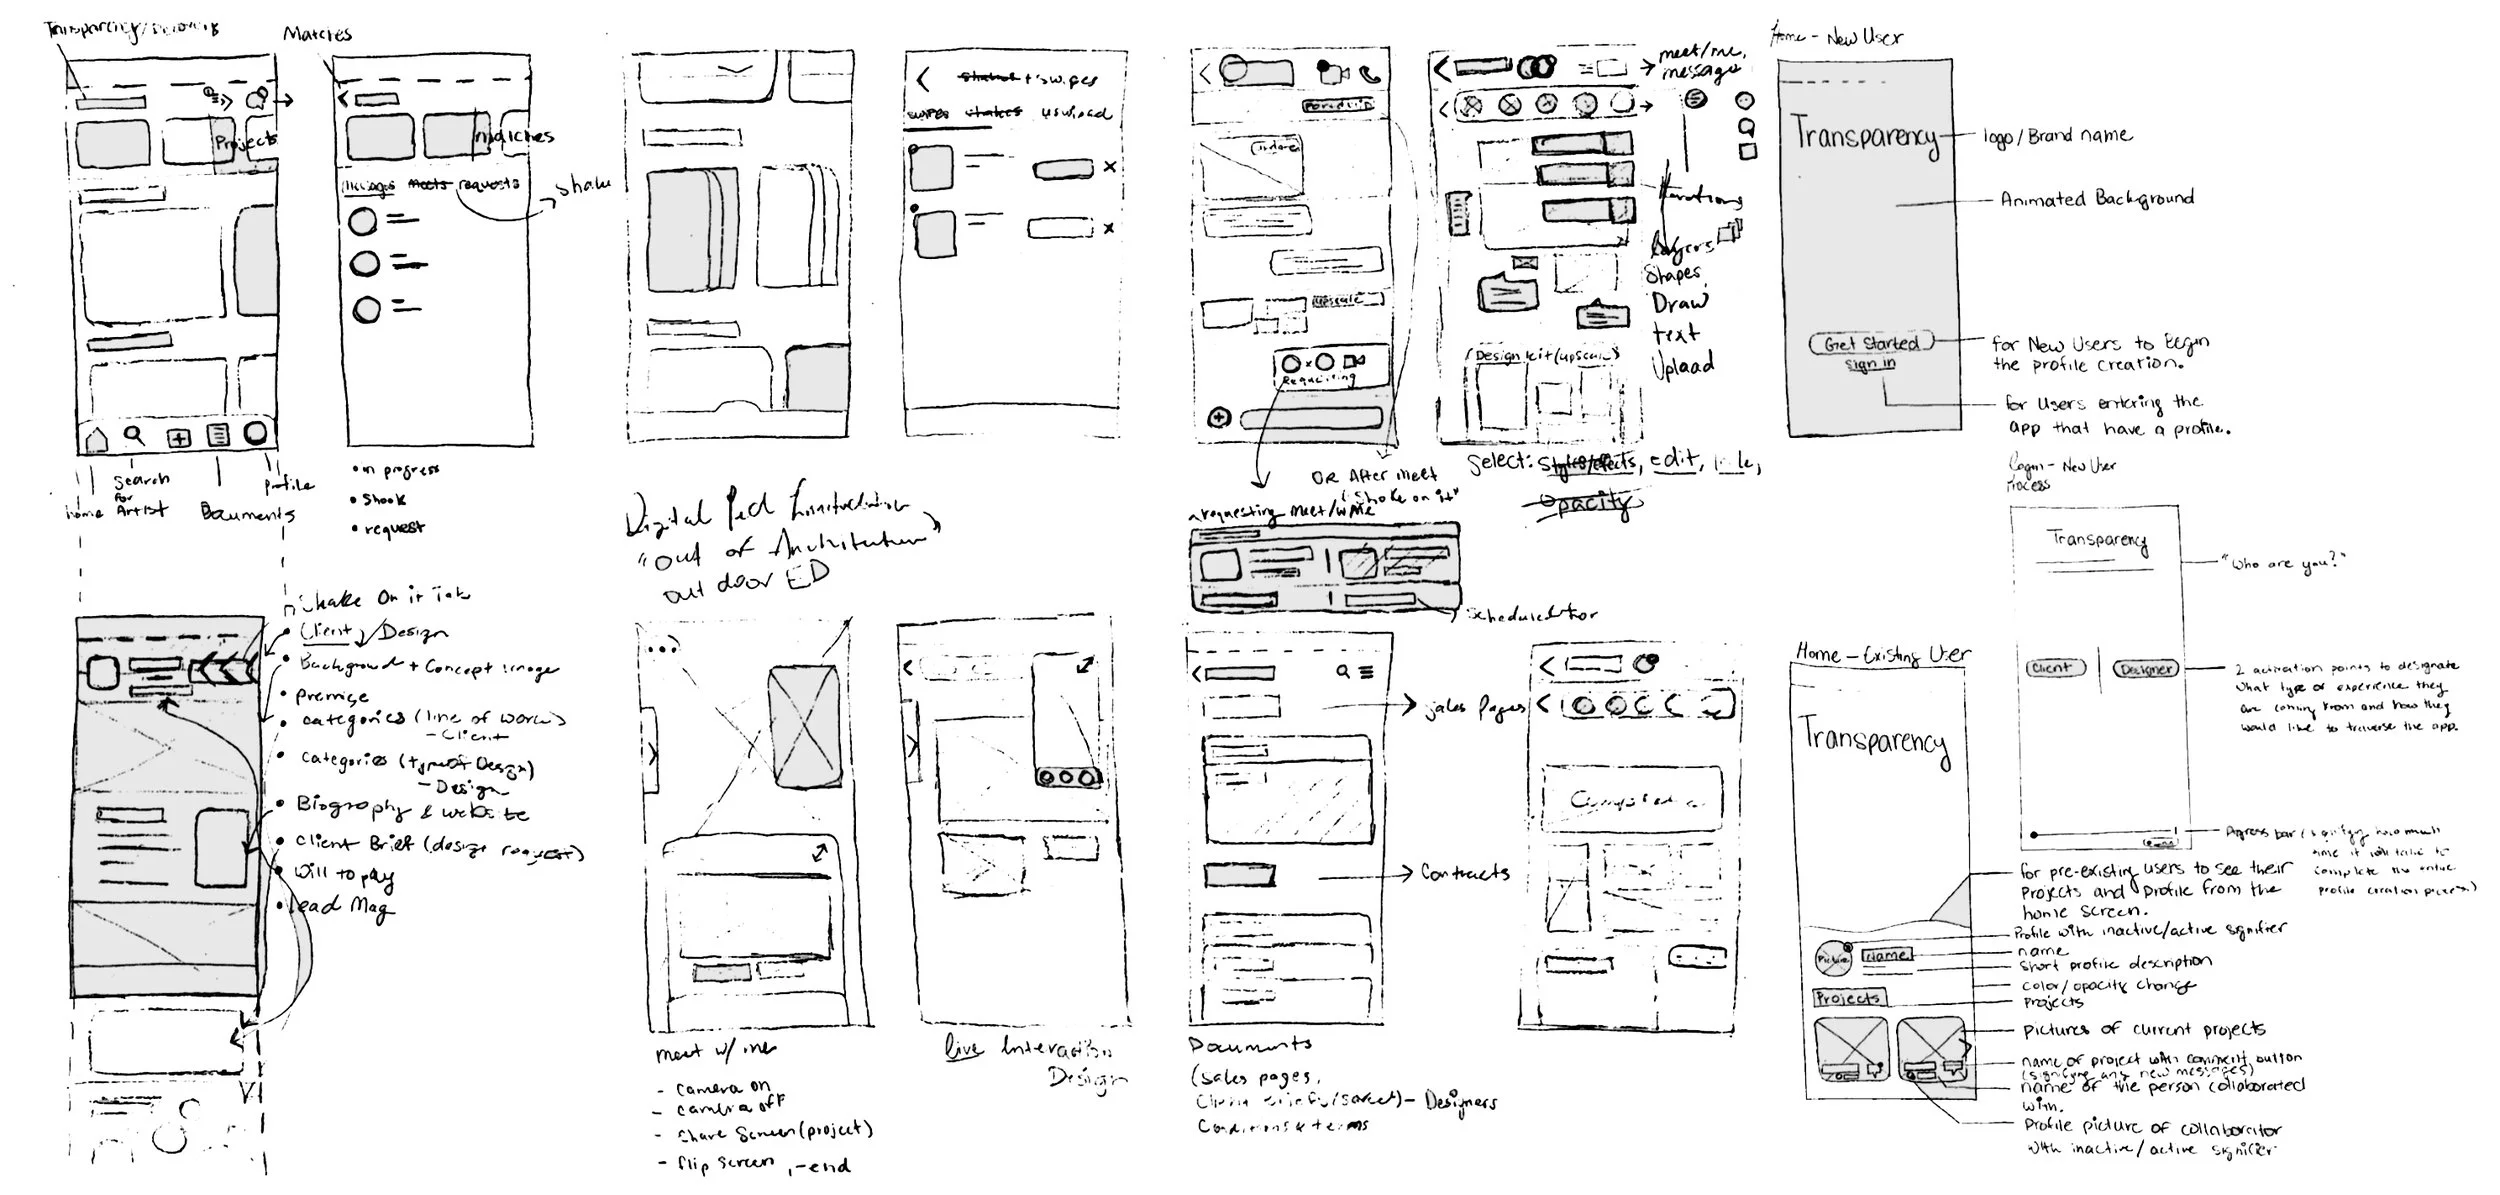 Transparency/
Projects
Home
Search
for
Artist
Documents
Profile
Matches
matches
Messages Meets requests
Shake
• in progress
• Shook
• request
Shake On it Tab
• Client / Design
• Background + Concept image
• Premise
• Categories (line of work)
- Client
• Categories (type of Design)
- Design
• Biography & website
• Client Brief (design request)
• Will to pay
• Lead Mag
shakes + swipes
swipes shakes
Digital
"Out of Architecture"
out door ED
meet w/ me
- Camera on
- Camera off
- Share Screen (project)
- flip screen, - end
live Interaction
Design
upscale
Requesting
OR After meet
("Shake on it"
requesting meet/w me
meet/me,
message
Iterations
Layers
Shapes
Draw
text
Upload
Design kit (upscale)
Select: Styles/effects, edit,
Opacity
Sales Pages
Contracts
Documents
(Sales pages,
- Designers
Conditions & terms
Home - New User
Transparency
logo/Brand name
Animated Background
Get Started
sign in
for New Users to begin
the profile creation.
for Users entering the
app that have a profile.
Login - New User
Process
Transparency
"Who are you?"
Client
Designer
2 activation points to designate
what type of experience they
are coming from and how they
would like to traverse the app.
Progress bar (signifying how much
time it will take to
complete the entire
profile creation process)
Home - Existing User
Transparency
for pre-existing users to see their
Projects and Profile from the
home screen.
Profile with inactive/active signifier
Picture
Name
name
Short profile description
color/opacity change
Projects
Projects
pictures of current projects
name of project with comment button
(signifying any new messages)
name of the person collaborated
with.
Profile picture of collaborator
with inactive/active signifier